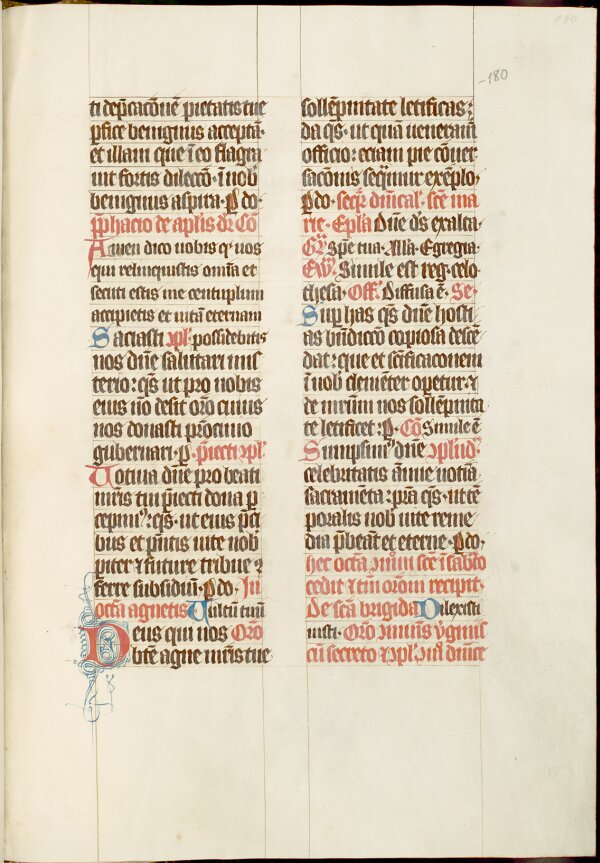 180
-180
ti dep̄cac̄oūe pietatis tue
ꝑfice benignus accepta·
et illam que ī eo flagra
uit fortis dilecc̄o· ī nob̄
benignus aspira· P do·
p̄phacio de aplis dr̄ Cō
Amen dico uobis ꝙ uos
qui relinquistis om̄ia et
secuti estis me centuplum
accipietis et uitā eternam
Saciasti xp̄l possidebitis
nos dn̄e salutari mis
terio: qs̄ ut pro nobis
eius nō desit or̄o cuius
nos donasti pr̄ocinio
gubernari· ꝑ·
Uotiua dn̄e pro beati
mr̄is tui p̄iecti dona ꝑ
cepim⁹: qs̄· ut eius p̄ci
bus et pn̄tis uite nob̄
ꝑiter ⁊ future tribue ⁊
ferre subsidiū· P do· In
octa agnetis Uultū tuū
Deus qui nos Oro
bt̄e agne mr̄is tue
sollēpnitate letificas:
da qs̄· ut quā ueneram̄
officio: eciam pie cōuer
sac̄onis seq̄mur exēplo·
P do· seqr̄ dn̄ical· sc̄e ma
rie· Epla Dn̄e ds̄ exalta·
Gͬ Spe tua· Alla Egregia·
Eῡ· Simile est reg· celo
Off· Diffusa ē· Se
Sup has qs̄ dn̄e hosti
as bn̄dicc̄o copiosa desc̄e
dat: que et sc̄ificac̄onem
ī nob̄ clemēter opetur· ⁊
de mr̄ium nos sollēpnita
te letificet: P· Cō Simile ē
Sumpsim⁹ dn̄e xpl'ud·
celebritatis ānue uotiua
sacram̄eta: pr̄a qs̄· ut tē
poralis uob̄ uite reme
dia p̄beāt et eterne· P do·
hec octa sc̄e ī sabb̄to
cedit ⁊ tm̄ orōm recipit·
De sc̄a brigida Dilexisti
iusti· Oro ūnius ṽginis
cū secreto ⁊ xpl'